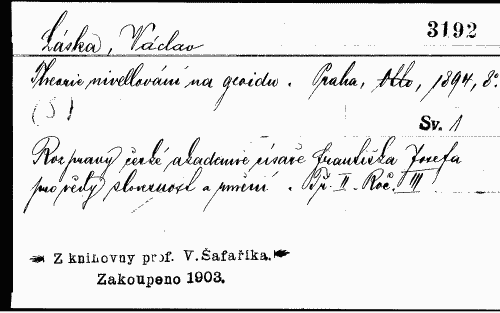 3192
Láska, Václav
Theorie nivellování na geoidu. Praha, Otto, 1894, 8°.
(S)
Sv. 1
Rozpravy české akademie císaře Františka Josefa
pro vědy slovesnost a umění. Tř. II. Roč. III
Z knihovny prof. V. Šafaříka.
Zakoupeno 1903.